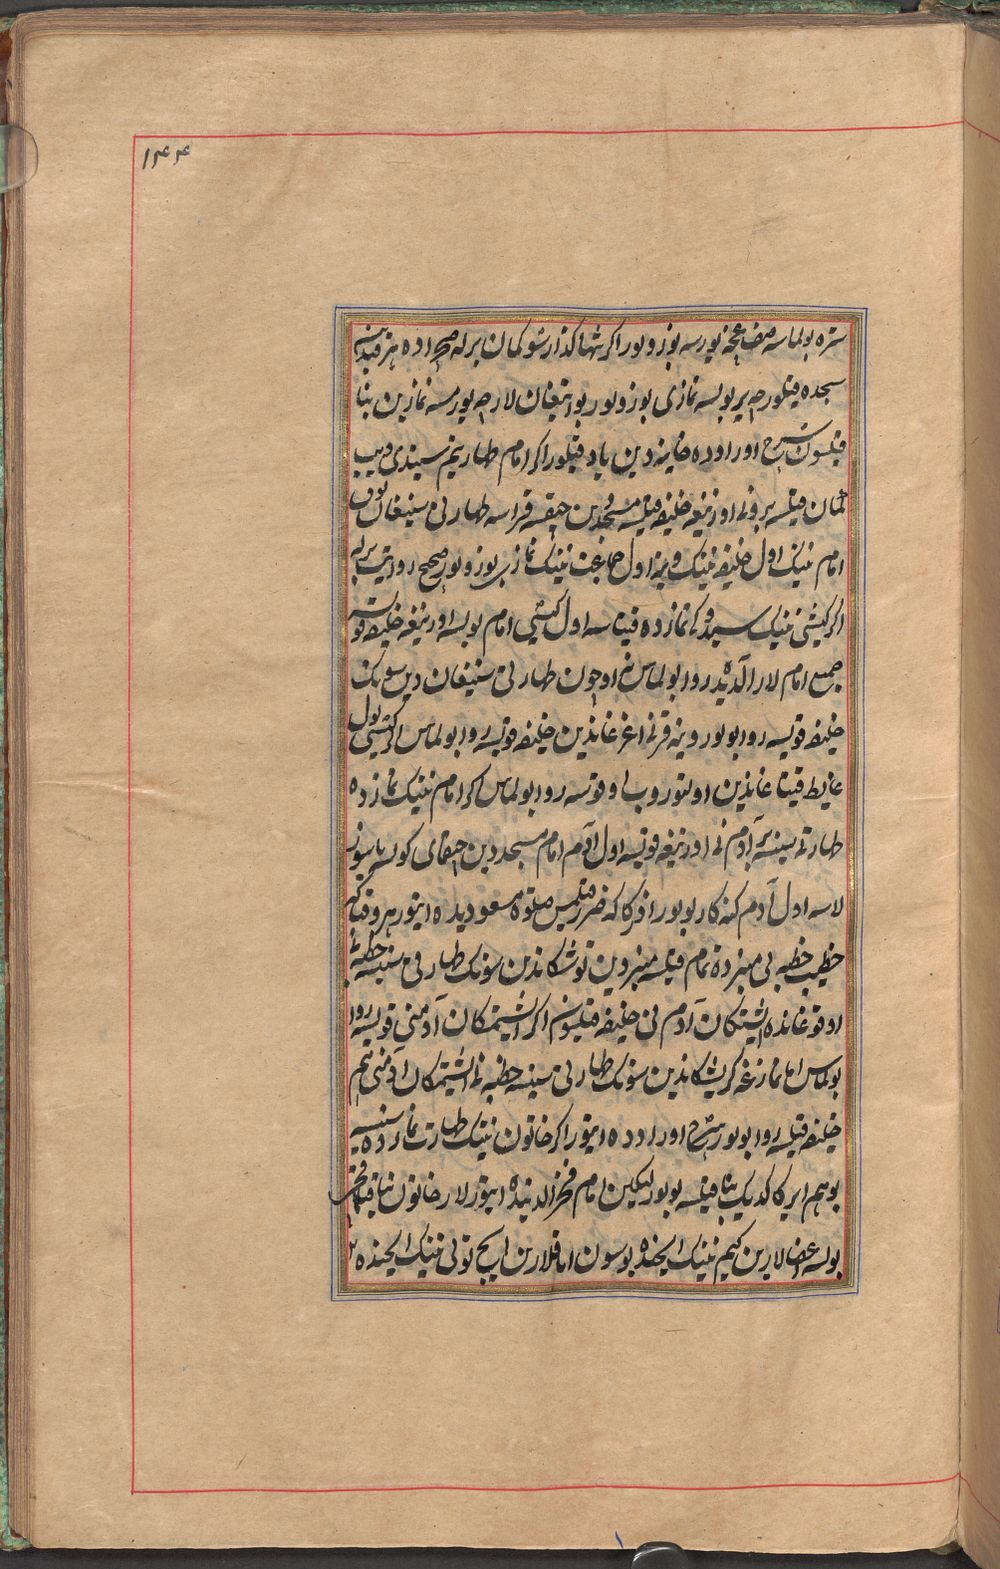 ۱۴۴
ستره بولماسه صف غچه یورسه بوزولور اکر تنها کذار شو کمان برله صحراده هر قیدین
سجده قیلور جه یر بولسه نمازی بوزولور بو ایتیغان لارجه یورمسه نمازین بنا
قیلسون شرح اوراوده خاینه دین یاد قیلور اکر امام طهاریتم سیندی دیب
کمان قیلسه برونی اوزنیغه خلیفه قیلسه مسجددین چیقسه قراسه طهارتی سینیغان
امام نینک اول خلیفه نینک وینه اول جماعت نینک نمازی بوزولور صحیح روایت برله
اکر کیشی نینک نمازده قیناسه اول کیشی امام بولسه اورنیغه خلیفه قویسه
جمیع امام لار الدیده روا بولماس نی اوچون طهارتی سینیغان دین سونک
خلیفه قویسه روا بولور وینه قرنی اغرغانذین خلیفه قویسه روا بولماس اکر کیشی بول
غایط قیناغانذین اولتوروب اوقوسه روا بولماس اکر امام نینک نمازده
طهارتی سینسه بر آدم نی اورنیغه قویسه اول آدم امام مسجددین چیقمای کولسه یا سوز
لاسه اول آدم کنه کار بولور اذکا که ضرر قیلمس صلوة مسعودیده ایتور هر وقتکه
خطیب خطبه نی منبرده تمام قیلسه منبردین توشکاندین سونک طهارتی سینسه خطبه
اوقوغانده ایشیتکان آدم نی خلیفه قیلسون اکر ایشیتمکان آدمنی قویسه روا
بولماس اما نمازغه کریشکاندین سونک طهارتی سینسه خطبه نی ایشیتمکان آدمنی هم
خلیفه قیلسه روا بولور شرح اوراوده ایتور اکر خاتون نینک طهارت نمازده سینسه
بو هم ایرکا کدیک بنا قیلسه بولور لیکین امام فخر الدنیده ایتورلار خاتون بنا قیلماق
بولسه اعضالارین کیم نینک ایچنده بولسون اما قلارین ایچ تونی نینک ایچنده